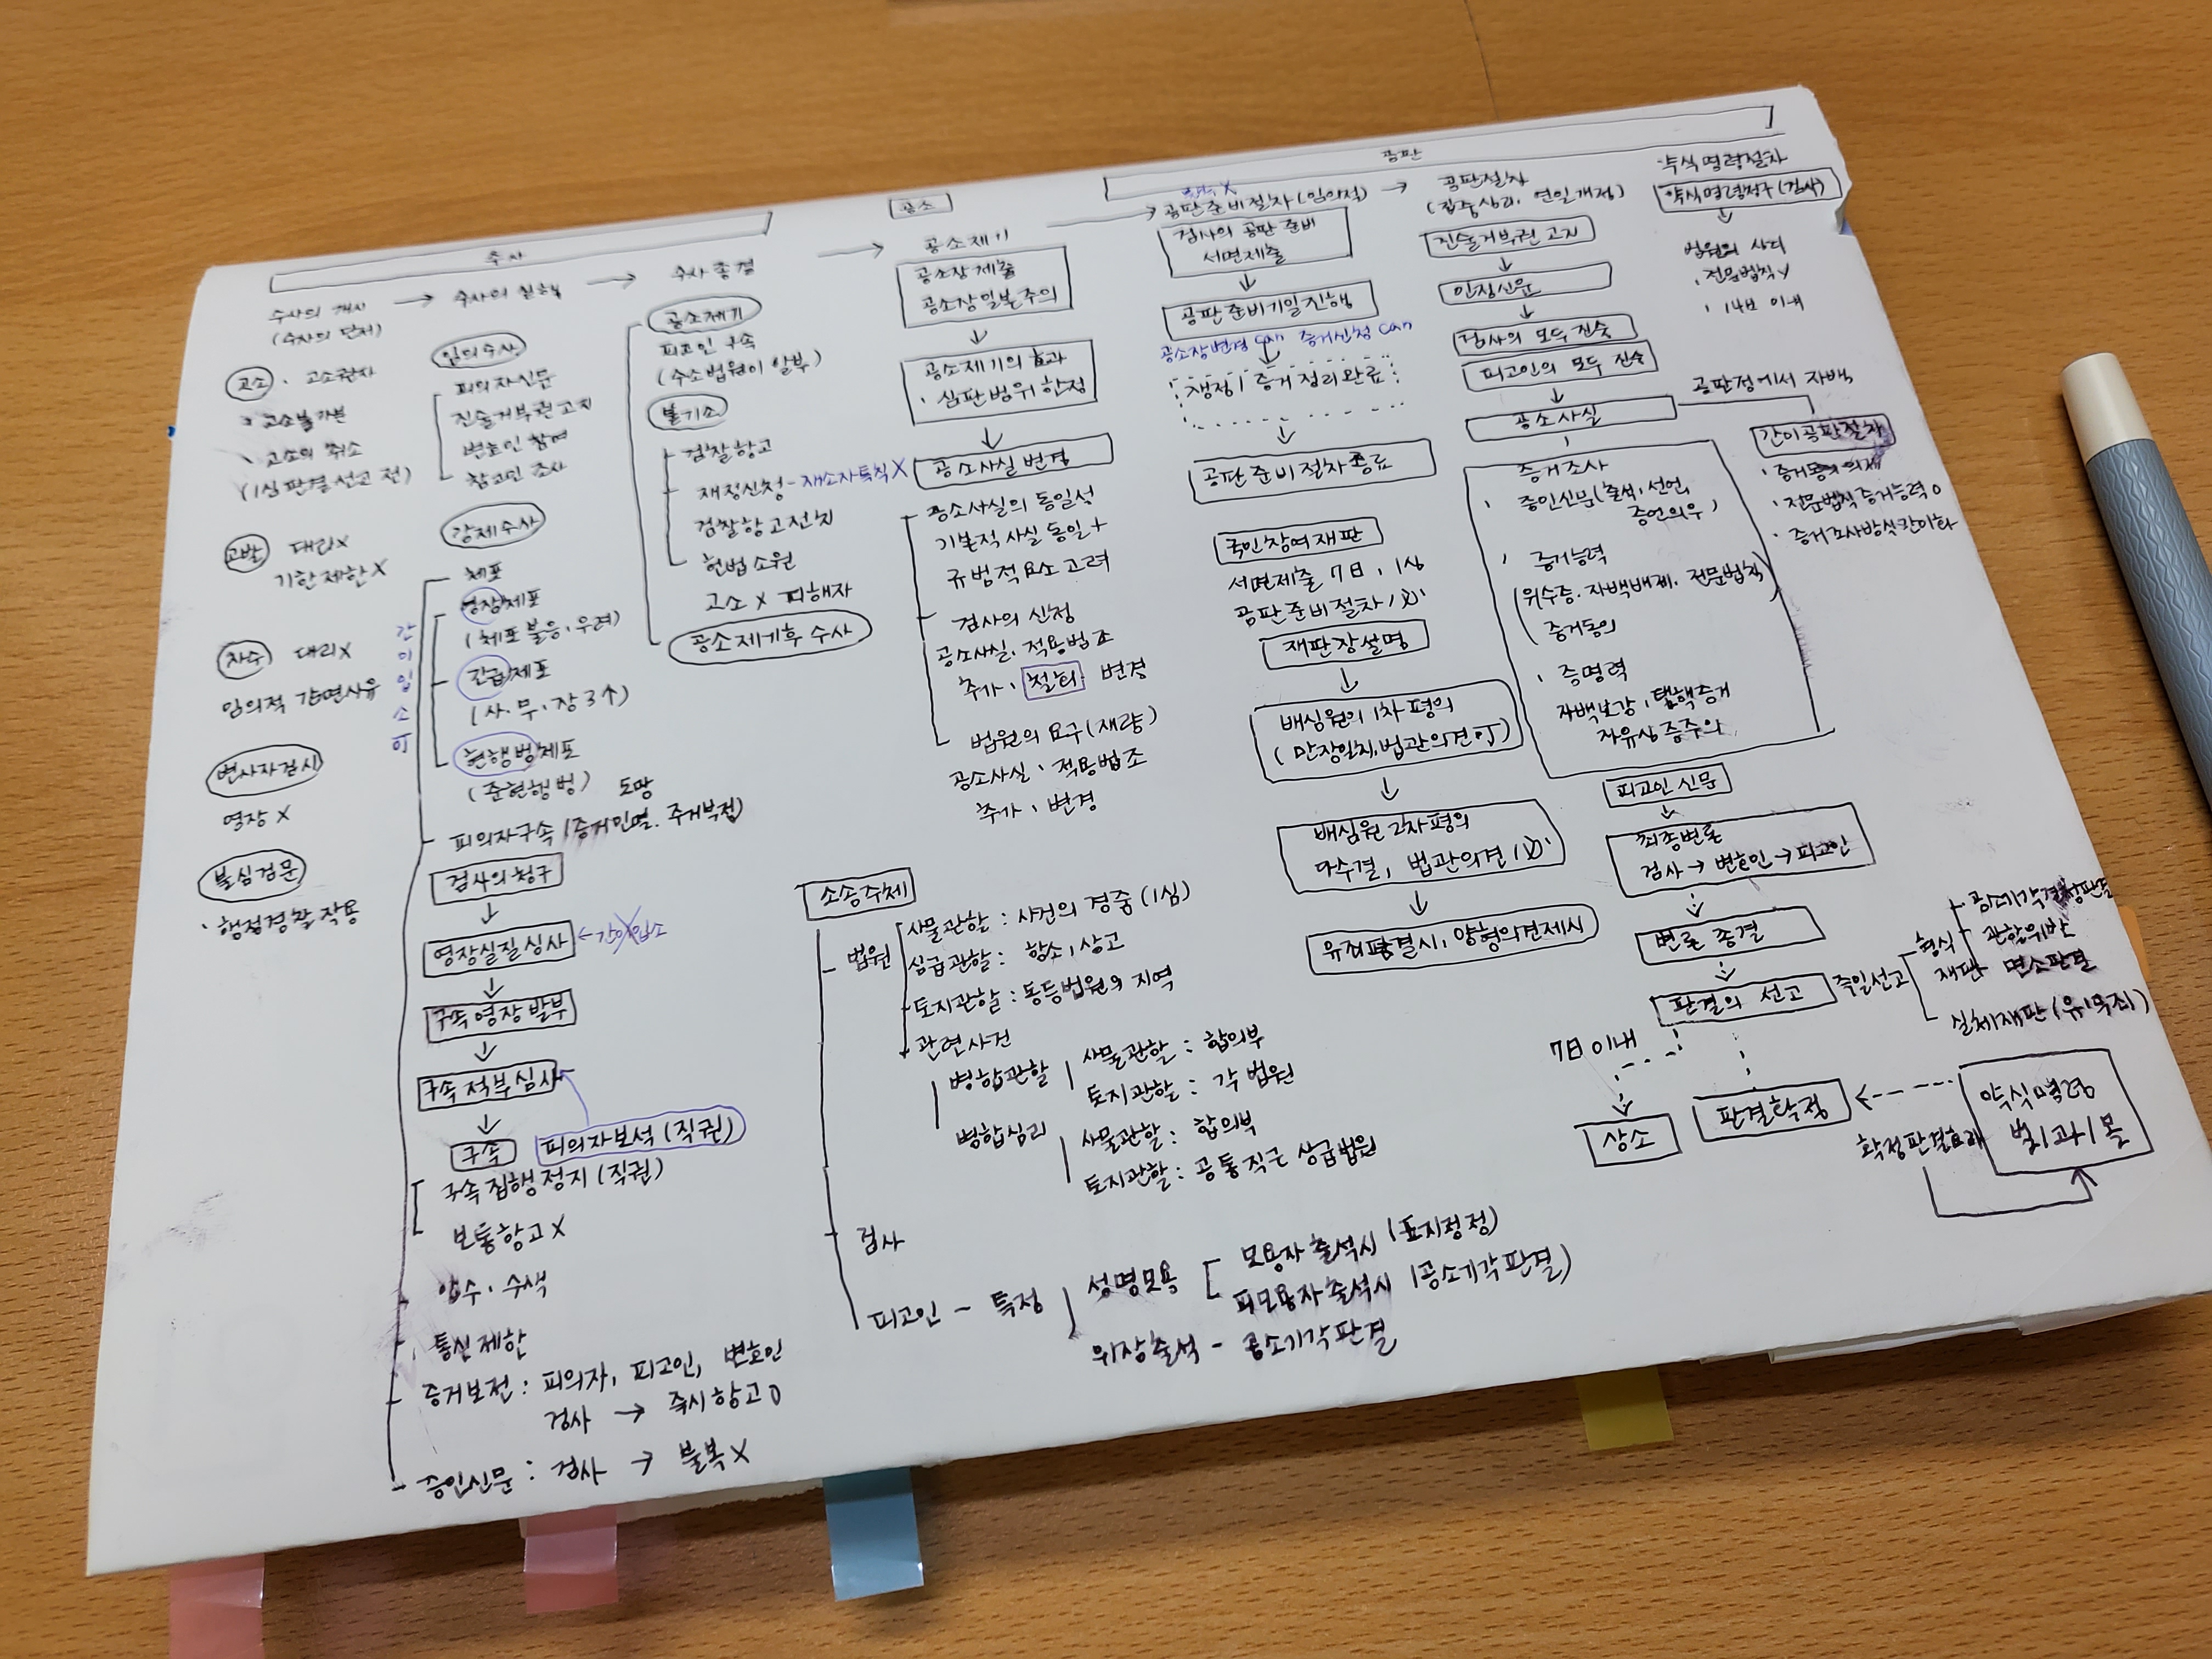 수사
수사의 개시 → 수사의 실행 → 수사 종결
(수사의 단서)
고소 · 고소권자
· 고소불가분
· 고소의 취소
(1심 판결 선고 전)
고발 대리X
기한 제한 X
자수 대리X
임의적 감면사유
변사자검시
영장 X
불심검문
· 행정경찰 작용
임의수사
피의자신문
진술거부권 고지
변호인 참여
참고인 조사
강제수사
체포
영장체포
(체포 불응, 우려)
긴급체포
(사. 무. 장 3↑)
현행범체포
(준현행범)
피의자구속 (증거인멸. 주거부정)
도망
검사의 청구
↓
영장실질심사 ←
↓
구속영장 발부
↓
구속 적부 심사
↓
구속 피의자보석 (직권)
구속 집행 정지 (직권)
보통항고 X
압수 · 수색
통신 제한
증거보전 : 피의자, 피고인, 변호인
검사 → 즉시항고 O
증인신문 : 검사 → 불복 X
공소제기
피고인 구속
(수소법원이 발부)
불기소
검찰항고
재정신청 - 재소자특칙 X
검찰항고전치
헌법소원
고소 X 피해자
공소제기후 수사
공소
공소제기
공소장 제출
공소장일본주의
↓
공소제기의 효과
· 심판범위 한정
↓
공소사실 변경
공소사실의 동일성
기본적 사실 동일 +
규범적 요소 고려
검사의 신청
공소사실, 적용법조
추가, 철회, 변경
법원의 요구 (재량)
공소사실 · 적용법조
추가, 변경
소송주체
법원
사물관할 : 사건의 경중 (1심)
심급관할 : 항소, 상고
토지관할 : 동등법원의 지역
관련사건
병합관할
사물관할 : 합의부
토지관할 : 각 법원
병합심리
사물관할 : 합의부
토지관할 : 공통 직근 상급법원
검사
피고인 - 특정
성명모용
모용자 출석시 (표지정정)
피모용자 출석시 (공소기각 판결)
위장출석 - 공소기각 판결
공판
공판준비절차 (임의적) →
검사의 공판 준비
서면제출
↓
공판준비기일진행
공소장변경 can 증거신청 can
쟁점 / 증거 정리완료
↓
공판 준비절차 종료
국민참여재판
서면제출 7日, 1심
공판준비절차 (必)
재판장설명
↓
배심원의 1차 평의
(만장일치, 법관의견 可)
↓
배심원 2차 평의
다수결, 법관의견 (必)
↓
유죄판결시, 양형의견제시
공판절차
(집중심리, 연일개정)
진술거부권 고지
↓
인정신문
↓
검사의 모두 진술
피고인의 모두 진술
↓
공소사실
공판정에서 자백
증거조사
증인신문 (출석, 선언,
증언의무)
증거능력
(위수증. 자백배제. 전문법칙)
증거동의
· 증명력
자백보강, 탄핵증거
자유심증주의
피고인 신문
↓
최종변론
검사 → 변호인 → 피고인
변론 종결
판결의 선고 즉일선고
형식
재판
관할위반
면소판결
실체재판 (유/무죄)
7日 이내
상소
판결확정
약식명령
벌/과/몰
확정판결효력
간이공판절차
· 증거동의 의제
· 전문법칙 증거능력 O
· 증거조사방식 간이화
약식명령절차
약식명령청구 (검사)
↓
법원의 심리
· 14日 이내